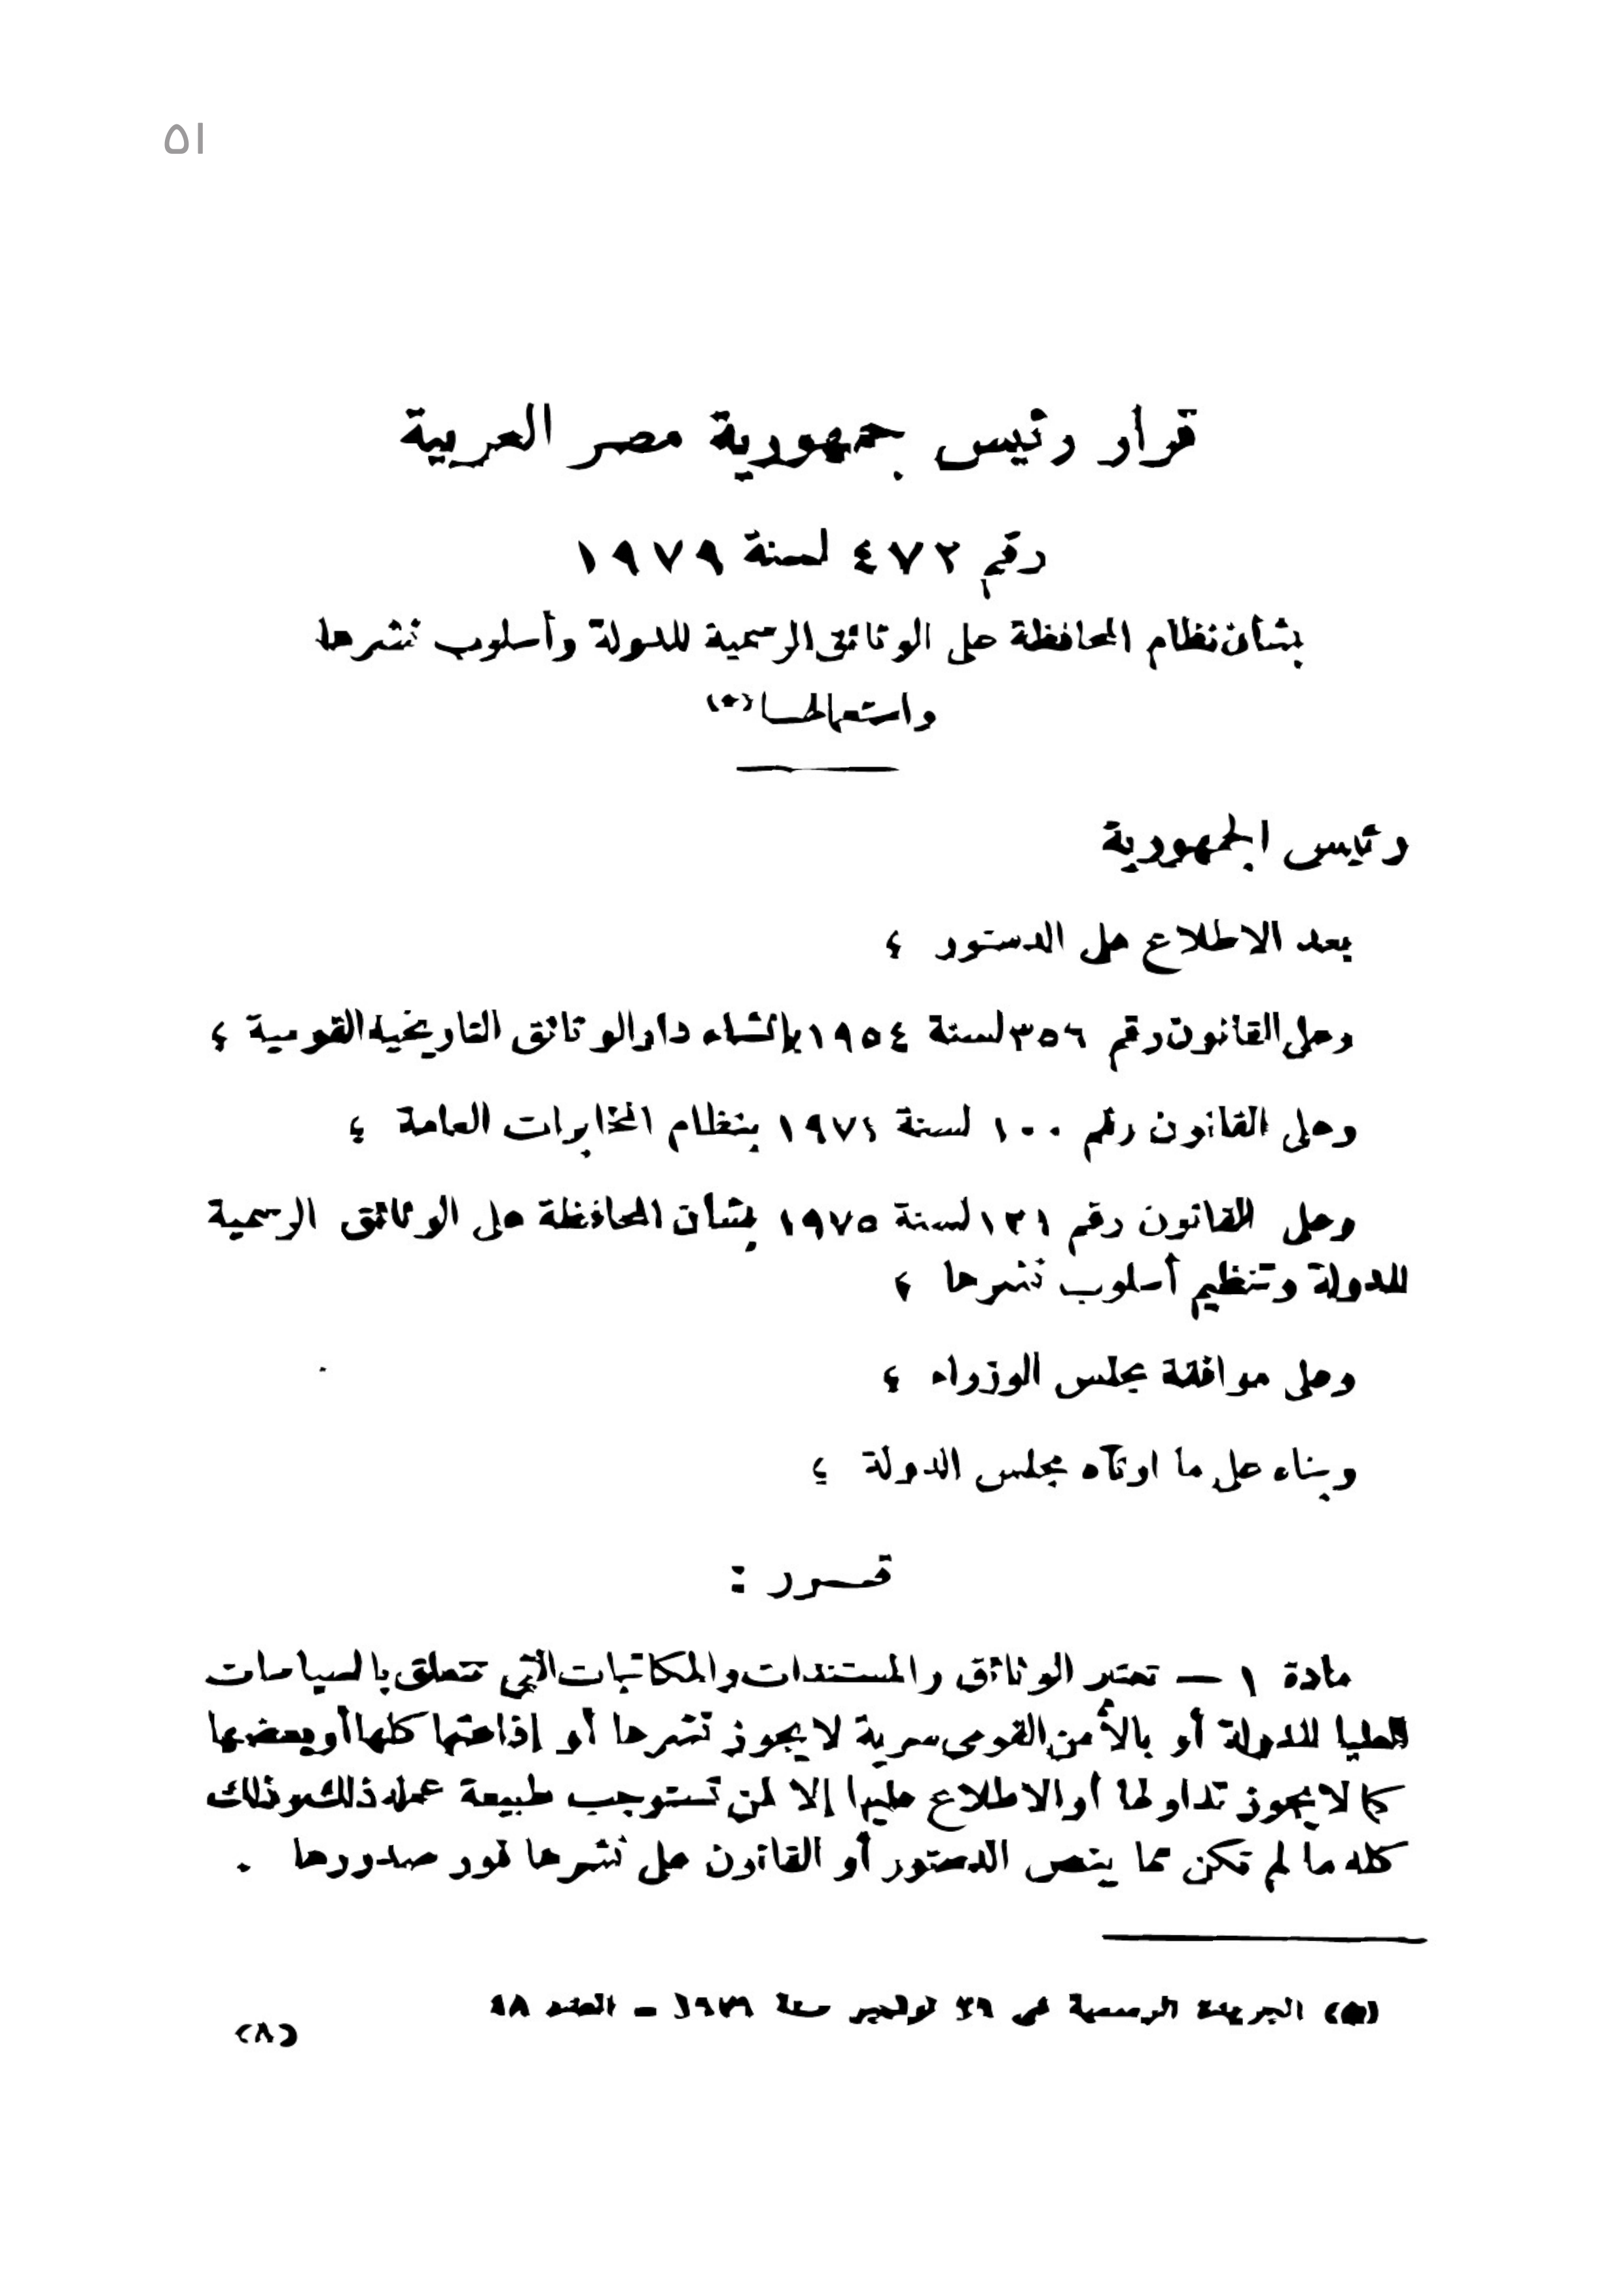 ٥١
قرار رئيس جمهورية مصر العربية
رقم ٤٧٢ لسنة ١٩٧٩
بشأن نظام المحافظة على الوثائق الرسمية للدولة وأسلوب نشرها
واستعمالها (*)
رئيس الجمهورية
بعد الاطلاع على الدستور ؛
وعلى القانون رقم ٣٥٦ لسنة ١٩٥٤ بإنشاء دار الوثائق التاريخية القومية ؛
وعلى القانون رقم ١٠٠ لسنة ١٩٧١ بنظام المخابرات العامة ؛
وعلى القانون رقم ١٢١ لسنة ١٩٧٥ بشأن المحافظة على الوثائق الرسمية
للدولة وتنظيم أسلوب نشرها ،
وعلى موافقة مجلس الوزراء ؛
وبناء على ما ارتآه مجلس الدولة ؛
قـــرر :
مادة ١ — تعتبر الوثائق والمستندات والمكاتبات التي تتعلق بالسياسات
العليا للدولة أو بالأمن القومى سرية لا يجوز نشرها أو إذاعتها كلها أو بعضها
كما لا يجوز تداولها أو الاطلاع عليها إلا لمن تستوجب طبيعة عمله ذلك وذلك
كله ما لم تكن مما ينص الدستور أو القانون على نشرها فور صدورها .
(*) الجريدة الرسمية فى ٢٩ نوفمبر سنة ١٩٧٩ – العدد ٤٨
(٨)